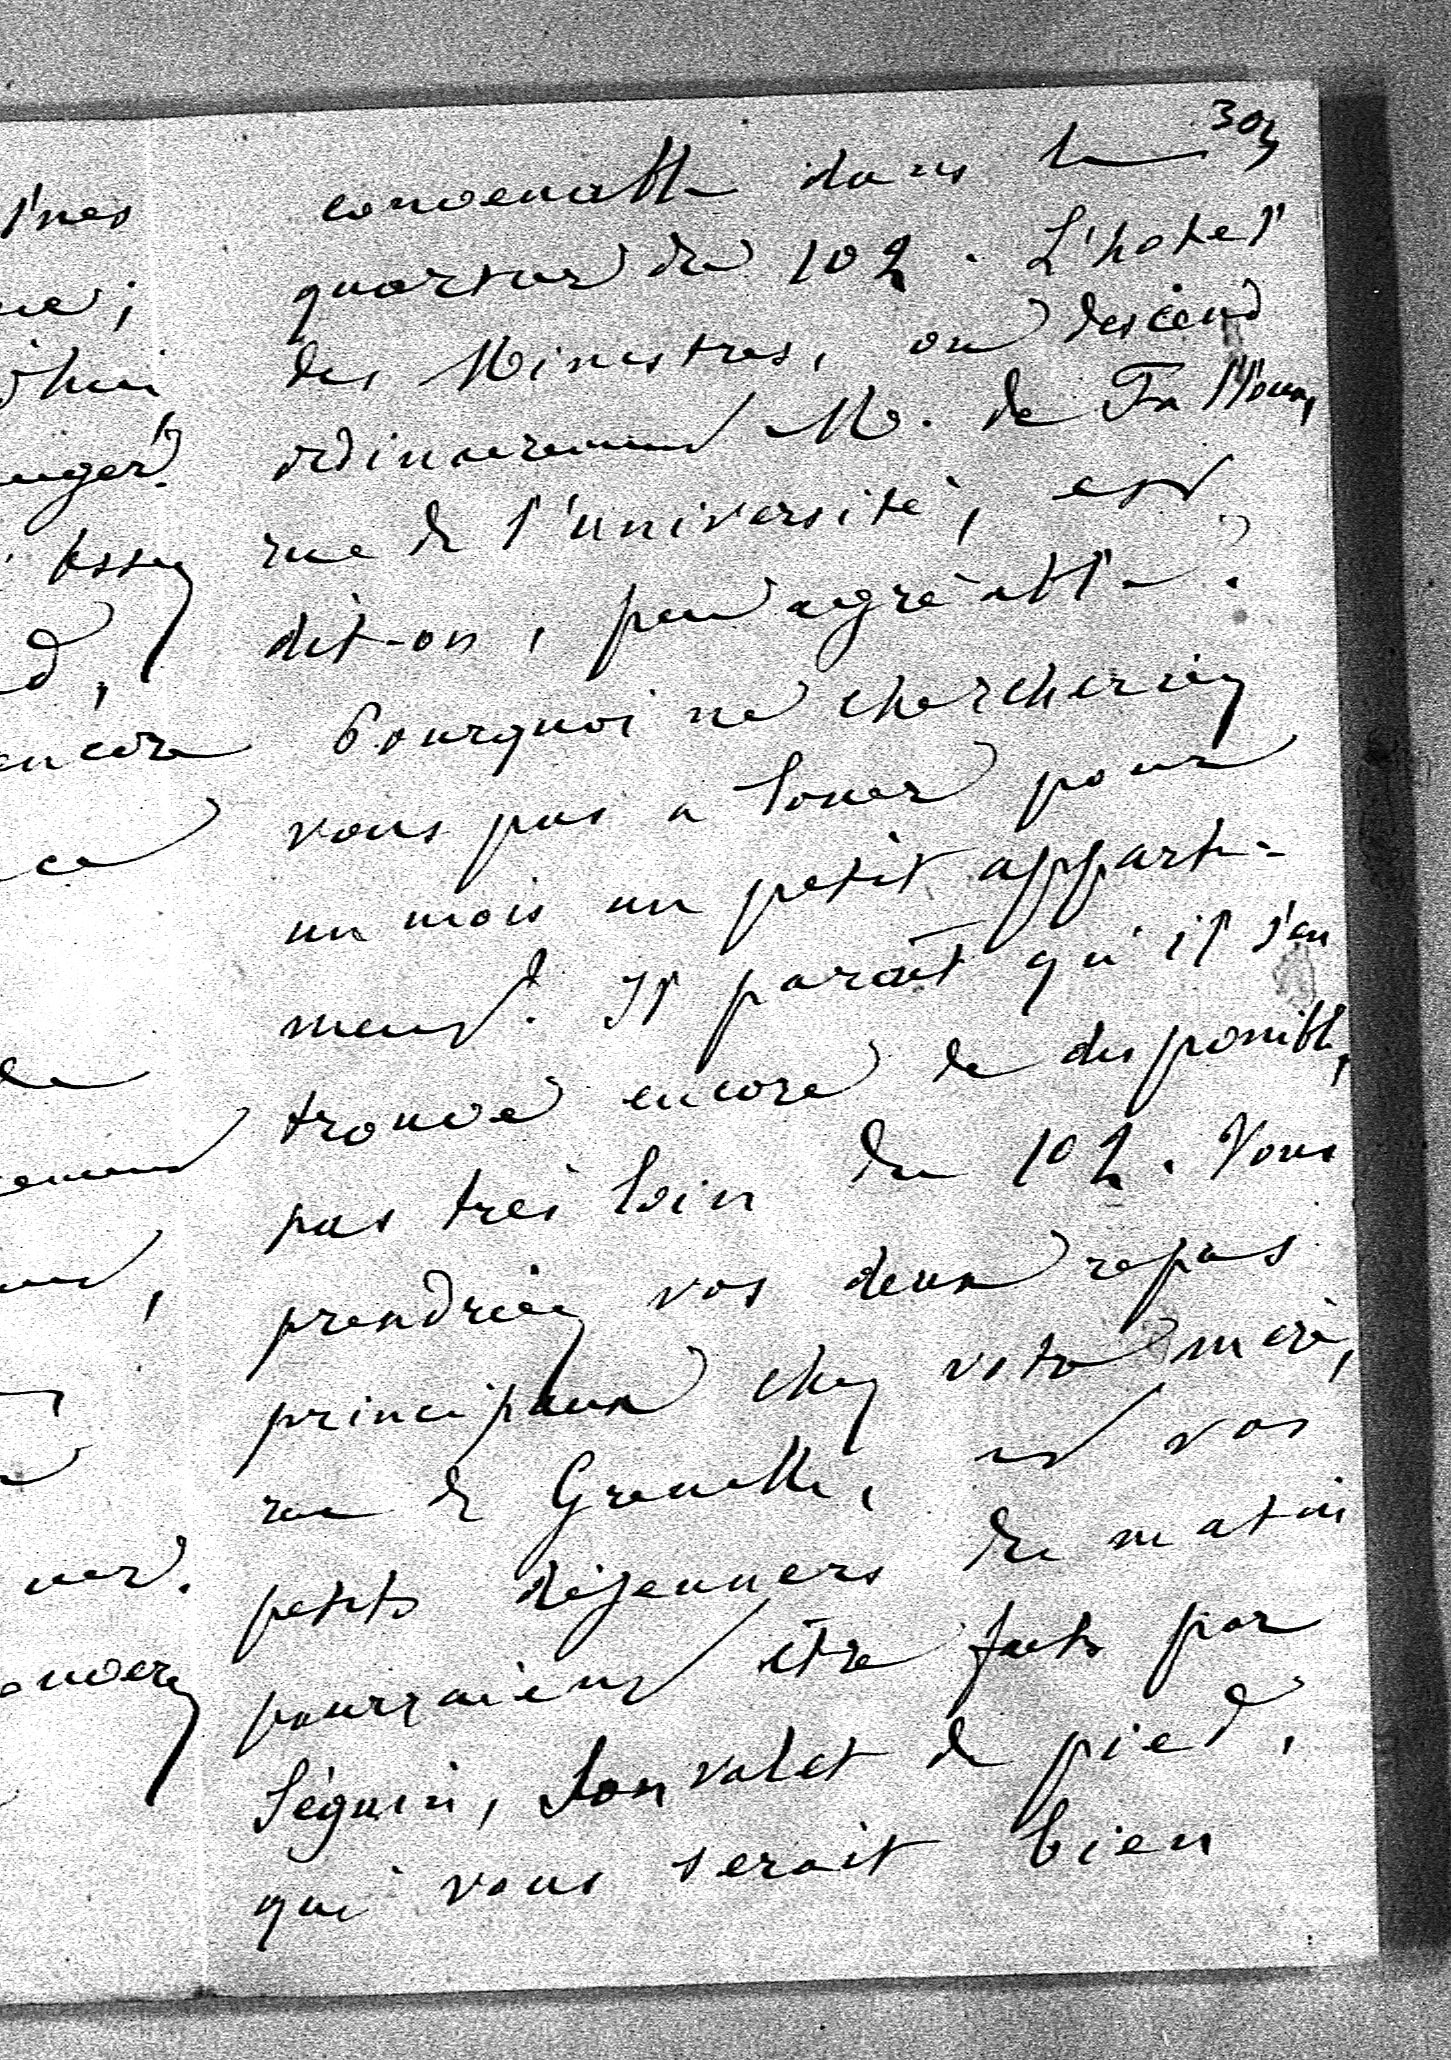 303
convenable dans le
quartier du 102. L'hotel
des Ministres, où descend
ordinairement M. de Falloux,
rue de l'université, est
dit-on, peu agréable.
Pourquoi ne chercheriez
vous pas a louer pour
un mois un petit apparte-
ment. Il paraît qu'il s'en
trouve encore de disponible,
pas très loin du 102. Vous
prendriez vos deux repas
principaux chez votre mère,
rue de Grenelle, et vos
petits déjeuners du matin
pourraient être faits par
Séguin, son valet de pied,
qui vous serait bien
l'nes
ue;
d'hui
anger.
d,
encore
ce
de
ement
ver.